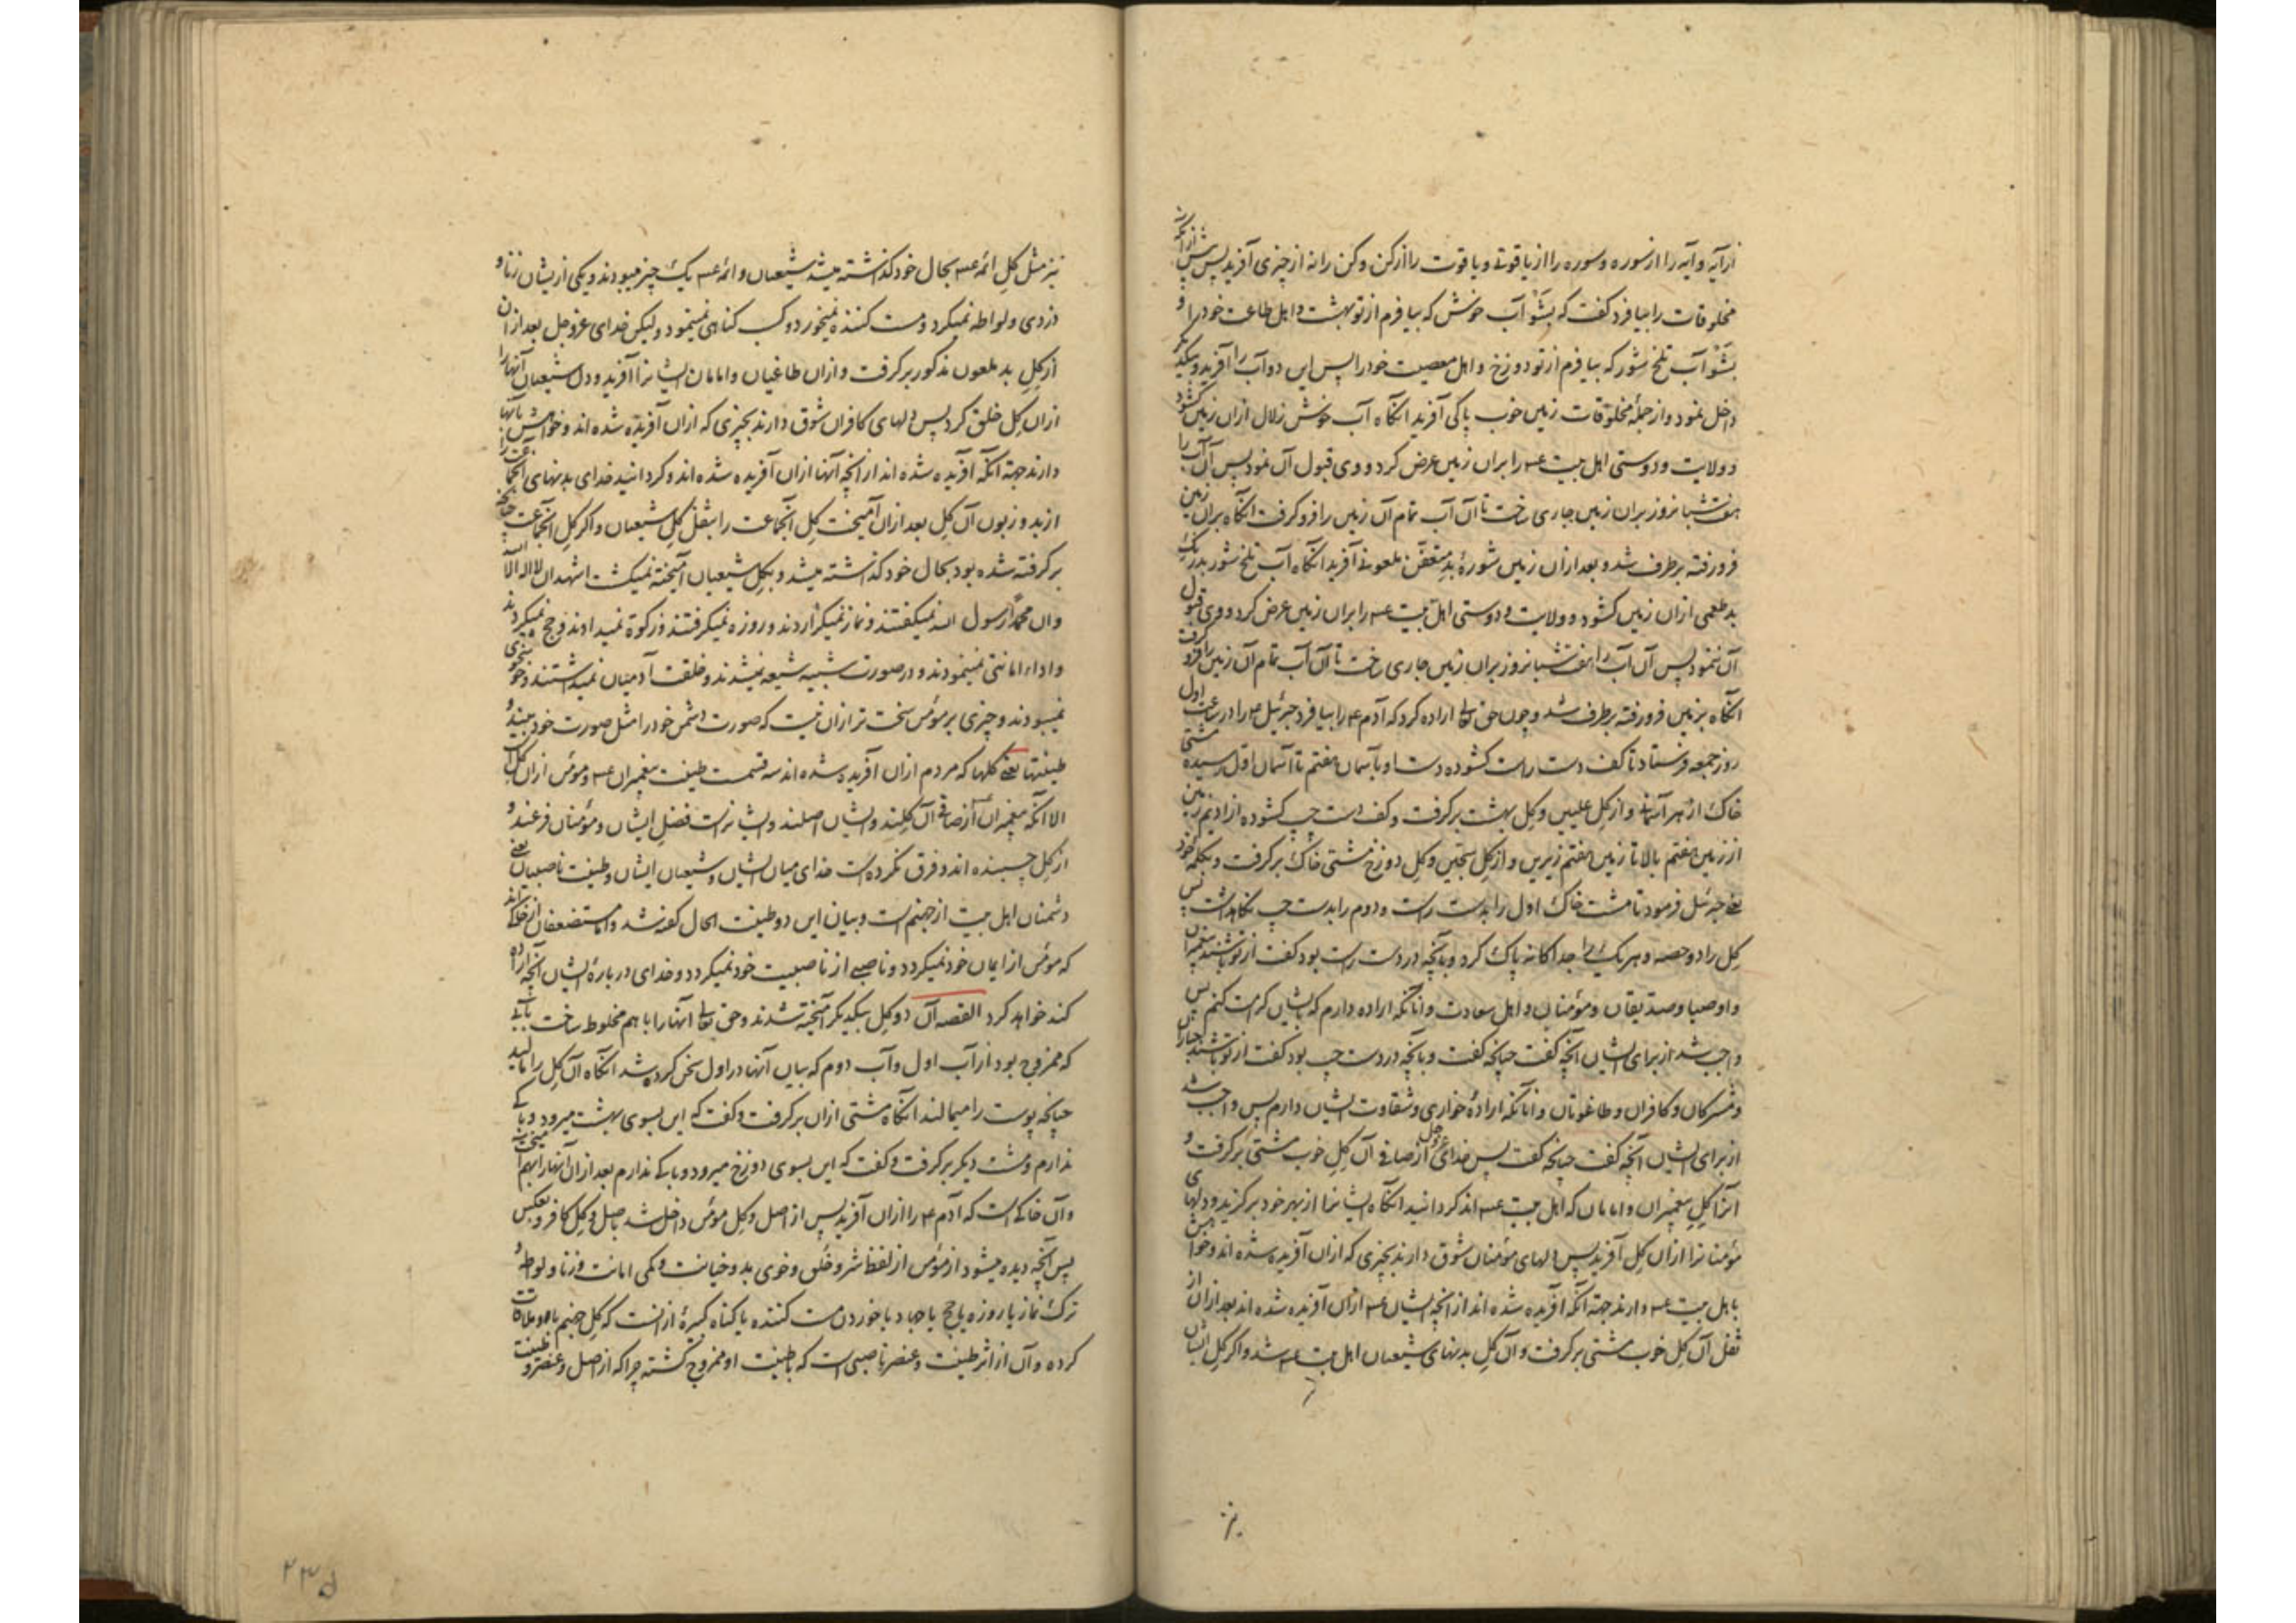 ازآیه وآیه را از سوره وسوره را از یاقوته ویاقوت را از کن وکن را نه از چیزی آفرید پس پیش از آنکه
مخلوقات را بیافرد گفت که بشو آب خوش که بیافرم از تو بهشت و اهل طاعت خود را و
بشو آب تلخ شور که بیافرم از تو دوزخ و اهل معصیت خود را پس این دو آب را آفرید و بیکدیگر
داخل نمود و از جملهٔ مخلوقات زمین خوب پاکی آفرید آنگاه آب خوش زلال ازان زمین گشود
و ولایت و دوستی اهل بیت عم را بران زمین عرض کرد و وی قبول آن نمود پس آن آب را
هفت شبانروز بران زمین جاری ساخت تا آن آب تمام آن زمین را فرو گرفت آنگاه بران زمین
فرو رفته برطرف شد و بعد ازان زمین شورهٔ بد متعفن ملعونی آفرید آنگاه آب تلخ شور بدرنگ
بد طعمی ازان زمین گشود و ولایت و دوستی اهل بیت عم را بران زمین عرض کرد و وی قبول
آن ننمود پس آن آب را هفت شبانروز بران زمین جاری ساخت تا آن آب تمام آن زمین را فرو گرفت
آنگاه بزمین فرو رفته برطرف شد و چون حق تعالی اراده کرد که آدم ع را بیافرد جبرئیل ع را در ساعت اول
روز جمعه فرستاد تا کف دست راست گشوده دست او باسمان هفتم تا آسمان اول رسیده مشتی
خاک از هر آسمانی و از گل علیین و گل بهشت برگرفت و کف دست چپ گشوده از ادیم زمین
از زمین هفتم بالا تا زمین هفتم زیرین و از گل سجین و گل دوزخ مشتی خاک برگرفت و بکلمهٔ خود
یعنی جبرئیل فرمود تا مشت خاک اول را بدست راست و دوم را بدست چپ نگاهداشت پس
گل را دو حصه و هر یک را جداگانه پاک کرد و بآنچه در دست راست بود گفت از تو باشند پیغمبران
و اوصیا و صدیقان و مؤمنان و اهل سعادت و آنانکه اراده دارم که بایشان کرامت کنم پس
واجب شد از برای ایشان آنچه گفت چنانچه گفت و بآنچه در دست چپ بود گفت از تو باشند جباران
و مشرکان و کافران و طاغوتان و آنانکه ارادهٔ خواری و شقاوت ایشان دارم پس واجب شد
از برای ایشان آنچه گفت چنانچه گفت پس خدای عز وجل از صافی آن گل خوب مشتی برگرفت و
آنرا گل پیغمبران و امامان که اهل بیت عم اند گردانید آنگاه ایشانرا از بهر خود برگزید و دلهای
مؤمنانرا ازان گل آفرید پس دلهای مؤمنان شوق دارند بچیزی که ازان آفریده شده اند و خواهش
باهل بیت عم دارند جهته آنکه آفریده شده اند از آنچه ایشان عم ازان آفریده شده اند بعد ازان از
ثفل آن گل خوب مشتی برگرفت و آن گل بدنهای شیعیان اهل بیت عم شد و اگر گل ایشان
نیز مثل گل ائمه عم بحال خود گذاشته میشد شیعیان و ائمه عم یک چیز میبودند و یکی از یشان زنا و
دزدی و لواطه نمیکرد و مست کننده نمیخورد و کسب گناهی نمینمود ولیکن خدای عزوجل بعد ازان
از گل بد ملعون مذکور برگرفت و ازان طاغیان و امامان ایشانرا آفرید و دل شیعیان آنها را
ازان گل خلق کرد پس دلهای کافران شوق دارند بچیزی که ازان آفریده شده اند و خواهش بآنها
دارند جهته آنکه آفریده شده اند از آنچه آنها ازان آفریده شده اند و گردانید خدای بدنهای آنجماعت را
از بد و زبون آن گل بعد ازان آمیخت گل آنجماعت را بثفل گل شیعیان و اگر گل آنجماعت چنانچه
برگرفته شده بود بحال خود گذاشته میشد و بگل شیعیان آمیخته نمیگشت اشهد ان لا اله الا الله
و ان محمدا رسول الله نمیگفتند و نماز نمیگزاردند و روزه نمیگرفتند و زکوة نمیدادند و حج نمیکردند
و اداء امانتی نمینمودند و در صورت شبیه شیعه نمیشدند و خلقت آدمیان نمیداشتند و خوشخوی
نمیبودند و چیزی بر مؤمن سخت تر ازان نیست که صورت دشمن خود را مثل صورت خود بیند و
طینتها یعنی گلها که مردم ازان آفریده شده اند سه قسمت طینت پیغمبران عم و مؤمن ازان گل است
الا آنکه پیغمبران عم از صافی آن گلند و ایشان اصلند و ایشانراست فضل ایشان و مؤمنان فرعند و
از گل چسبنده اند و فرق نکرده است خدای میان ایشان و شیعیان ایشان و طینت ناصبیان یعنی
دشمنان اهل بیت از جهنم است و بیان این دو طینت الحال گفته شد و اما مستضعفان از خاکند
که مؤمن از ایمان خود نمیگردد و ناصبی از ناصبیت خود نمیگردد و خدای دربارهٔ ایشان آنچه اراده
کند خواهد کرد القصه آن دو گل بیکدیگر آمیخته شدند و حق تعالی آنها را با هم مخلوط ساخت بآبی
که ممزوج بود از آب اول و آب دوم که بیان آنها در اول سخن کرده شد آنگاه آن گل را مالید
چنانچه پوست را میمالند آنگاه مشتی ازان برگرفت و گفت که این بسوی بهشت میرود و باکی
ندارم و مشت دیگر برگرفت و گفت که این بسوی دوزخ میرود و باکی ندارم بعد ازان آنها را بهم آمیخت
و آن خاکیست که آدم ع را ازان آفرید پس از اصل و گل مؤمن داخل شد باصل و گل کافر و بعکس
پس آنچه دیده میشود از مؤمن از لفظ شر و خلق و خوی بد و خیانت و کمی امانت و زنا و لواطه و
ترک نماز یا روزه یا حج یا جهاد یا خوردن مست کننده یا گناه کبیره ازانست که گل جهنم با او ملاقات
کرده و آن از اثر طینت و عنصر ناصبی است که با طینت او ممزوج گشته چرا که از اصل و عنصر و طینت
۲۳۵